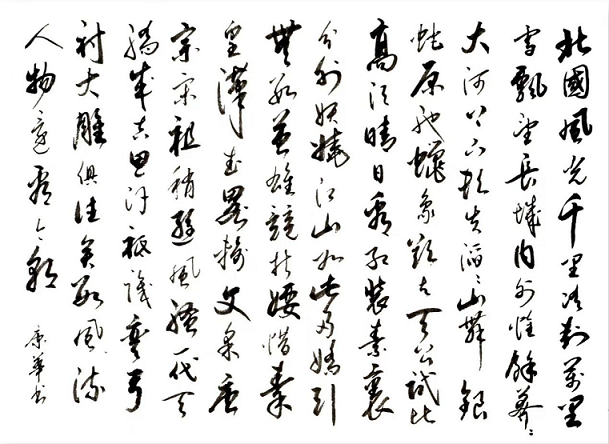 北國風光千里冰封萬里
雪飄望長城內外惟餘莽〻
大河上下頓失滔〻山舞銀
蛇原馳蠟象欲与天公試比
高須晴日看紅裝素裹
分外妖嬈江山如此多嬌引
無數英雄競折腰惜秦
皇漢武略輸文采唐
宗宋祖稍遜風騷一代天
驕成吉思汗祗識彎弓
射大雕俱往矣數風流
人物還看今朝
康華書